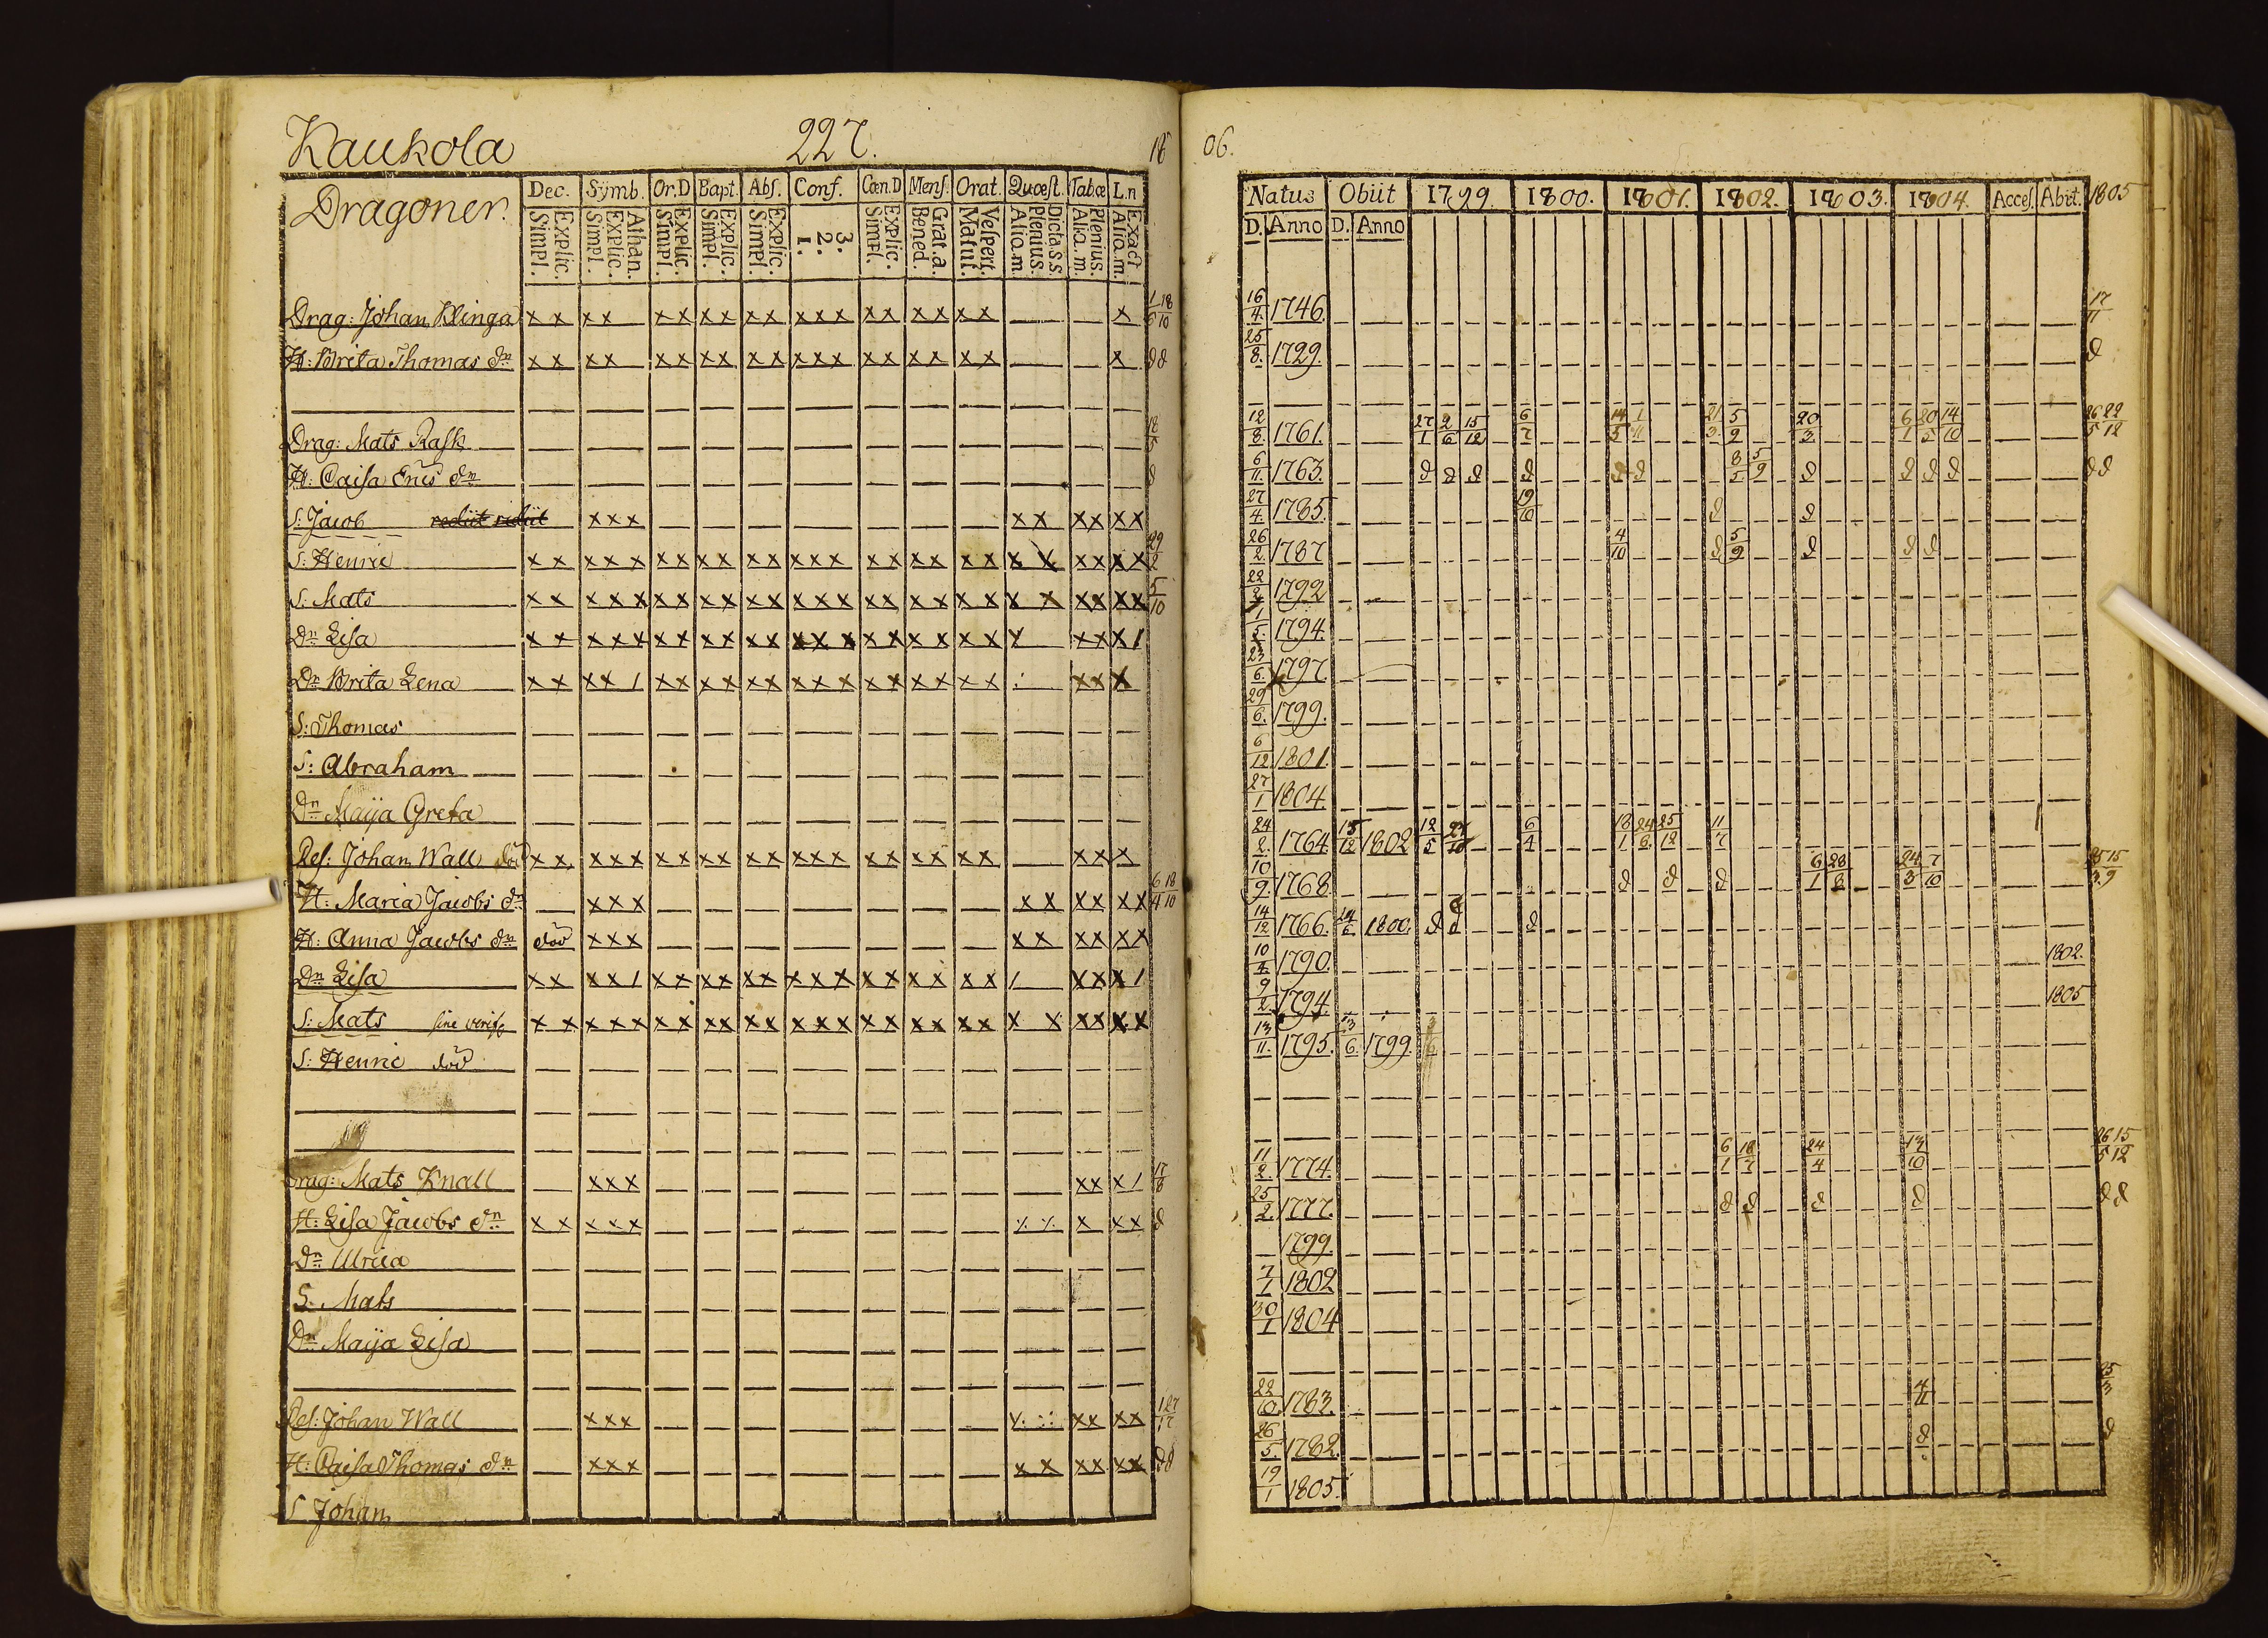 Kaukola 227. 18
Dragoner. Dec. Sÿmb. Or.D Bapt. Abſ. Conf. Cœn.D Menſ. Orat. Quœſt. Tabœ L.n
Explic. Simpl. Athan. Explic. Simpl. Explic. Simpl. Explic. Simpl. Explic. Simpl. 3. 2. 1. Explic. Simpl. Grat.a. Bened. Veſpert. Matut. Dicta.s.s. Plenius. Alio.m. Plenius. Alia.m. Exact Alia.m.
Drag: Johan Klinga x x x x x x x x x x x x x x x x x x x x
H: Brita Thomas dn x x x x x x x x x x x x x x x x x x x x dd
Drag: Mats Raſk 18/5
H: Caiſa Erics dn d
S: Jacob rediit x x x x x x x x x
S: Henric x x x x x x x x x x x x x x x x x x x x x x x x x x x 29/2
S: Mats x x x x x x x x x x x x x x x x x x x x x x x x x x x 5/10
Dn Liſa x x x x x x x x x x x x x x x x x x x x x x x x x x 1
Dn Brita Lena x x x x 1 x x x x x x x x x x x x x x x x x x x
S: Thomas
S: Abraham
Dn Maija Greta
Reſ: Johan Wall död x x x x x x x x x x x x x x x x x x x x x x x x
H: Maria Jacobs dn x x x x x x x x x 6/4 18/10
H: Anna Jacobs dn död x x x x x x x x x
Dn Liſa x x x x 1 x x x x x x x x x x x x x x x 1 x x x 1
S: Mats x x x x x x x x x x x x x x x x x x x x x x x x x x
S: Henric död
Drag: Mats Knall x x x x x x 1 17/8
H: Liſa Jacobs dn x x x x x x x x d
Dn Ulrica
S. Mats
Dn Maija Liſa
Reſ: Johan Wall x x x x x x x
H: Caiſa Thomas dn x x x x x x x x x dd
S Johan
06.
Natus Obiit 1799. 1800. 1801. 1802. 1803. 1804. Acceſ. Abiit. 1805
D. Anno D. Anno
16/4. 1746. 17/11
25/8. 1729. d
12/8. 1761. 27/1 2/6 15/12 6/7 14/5 21/3 5/9 20/3 6/1 20/5 14/10 26/5 22/12
6/11. 1763. d d d d d d 8/5 5/9 d d d d d d
27/4. 1785. 19/10 d d
26/2. 1787 4/10 d 5/9 d d d
1792
1/5. 1794.
23/6. 1797.
29/6. 1799.
6/12 1801
27/1 1804
24/2. 1764 15/12 1802 12/5 6/4 18/1 24/6 25/12 11/7
10/9. 1768. d d d 6/1 28/8 24/3 7/10 25/3 15/9
14/12 1766. 1800. d d d
1790. 1802.
9/2. 1794. 1805
13/11. 1795. 13/6. 1799.
11/2. 1774. 6/1 18/7 24/4 14/10 26/5 15/12
25/2. 1777. d d d d d d
1799.
7/1 1802
30/1 1804
22/10 1783. 4/11 25/3
26/5. 1782. d d
19/1 1805.